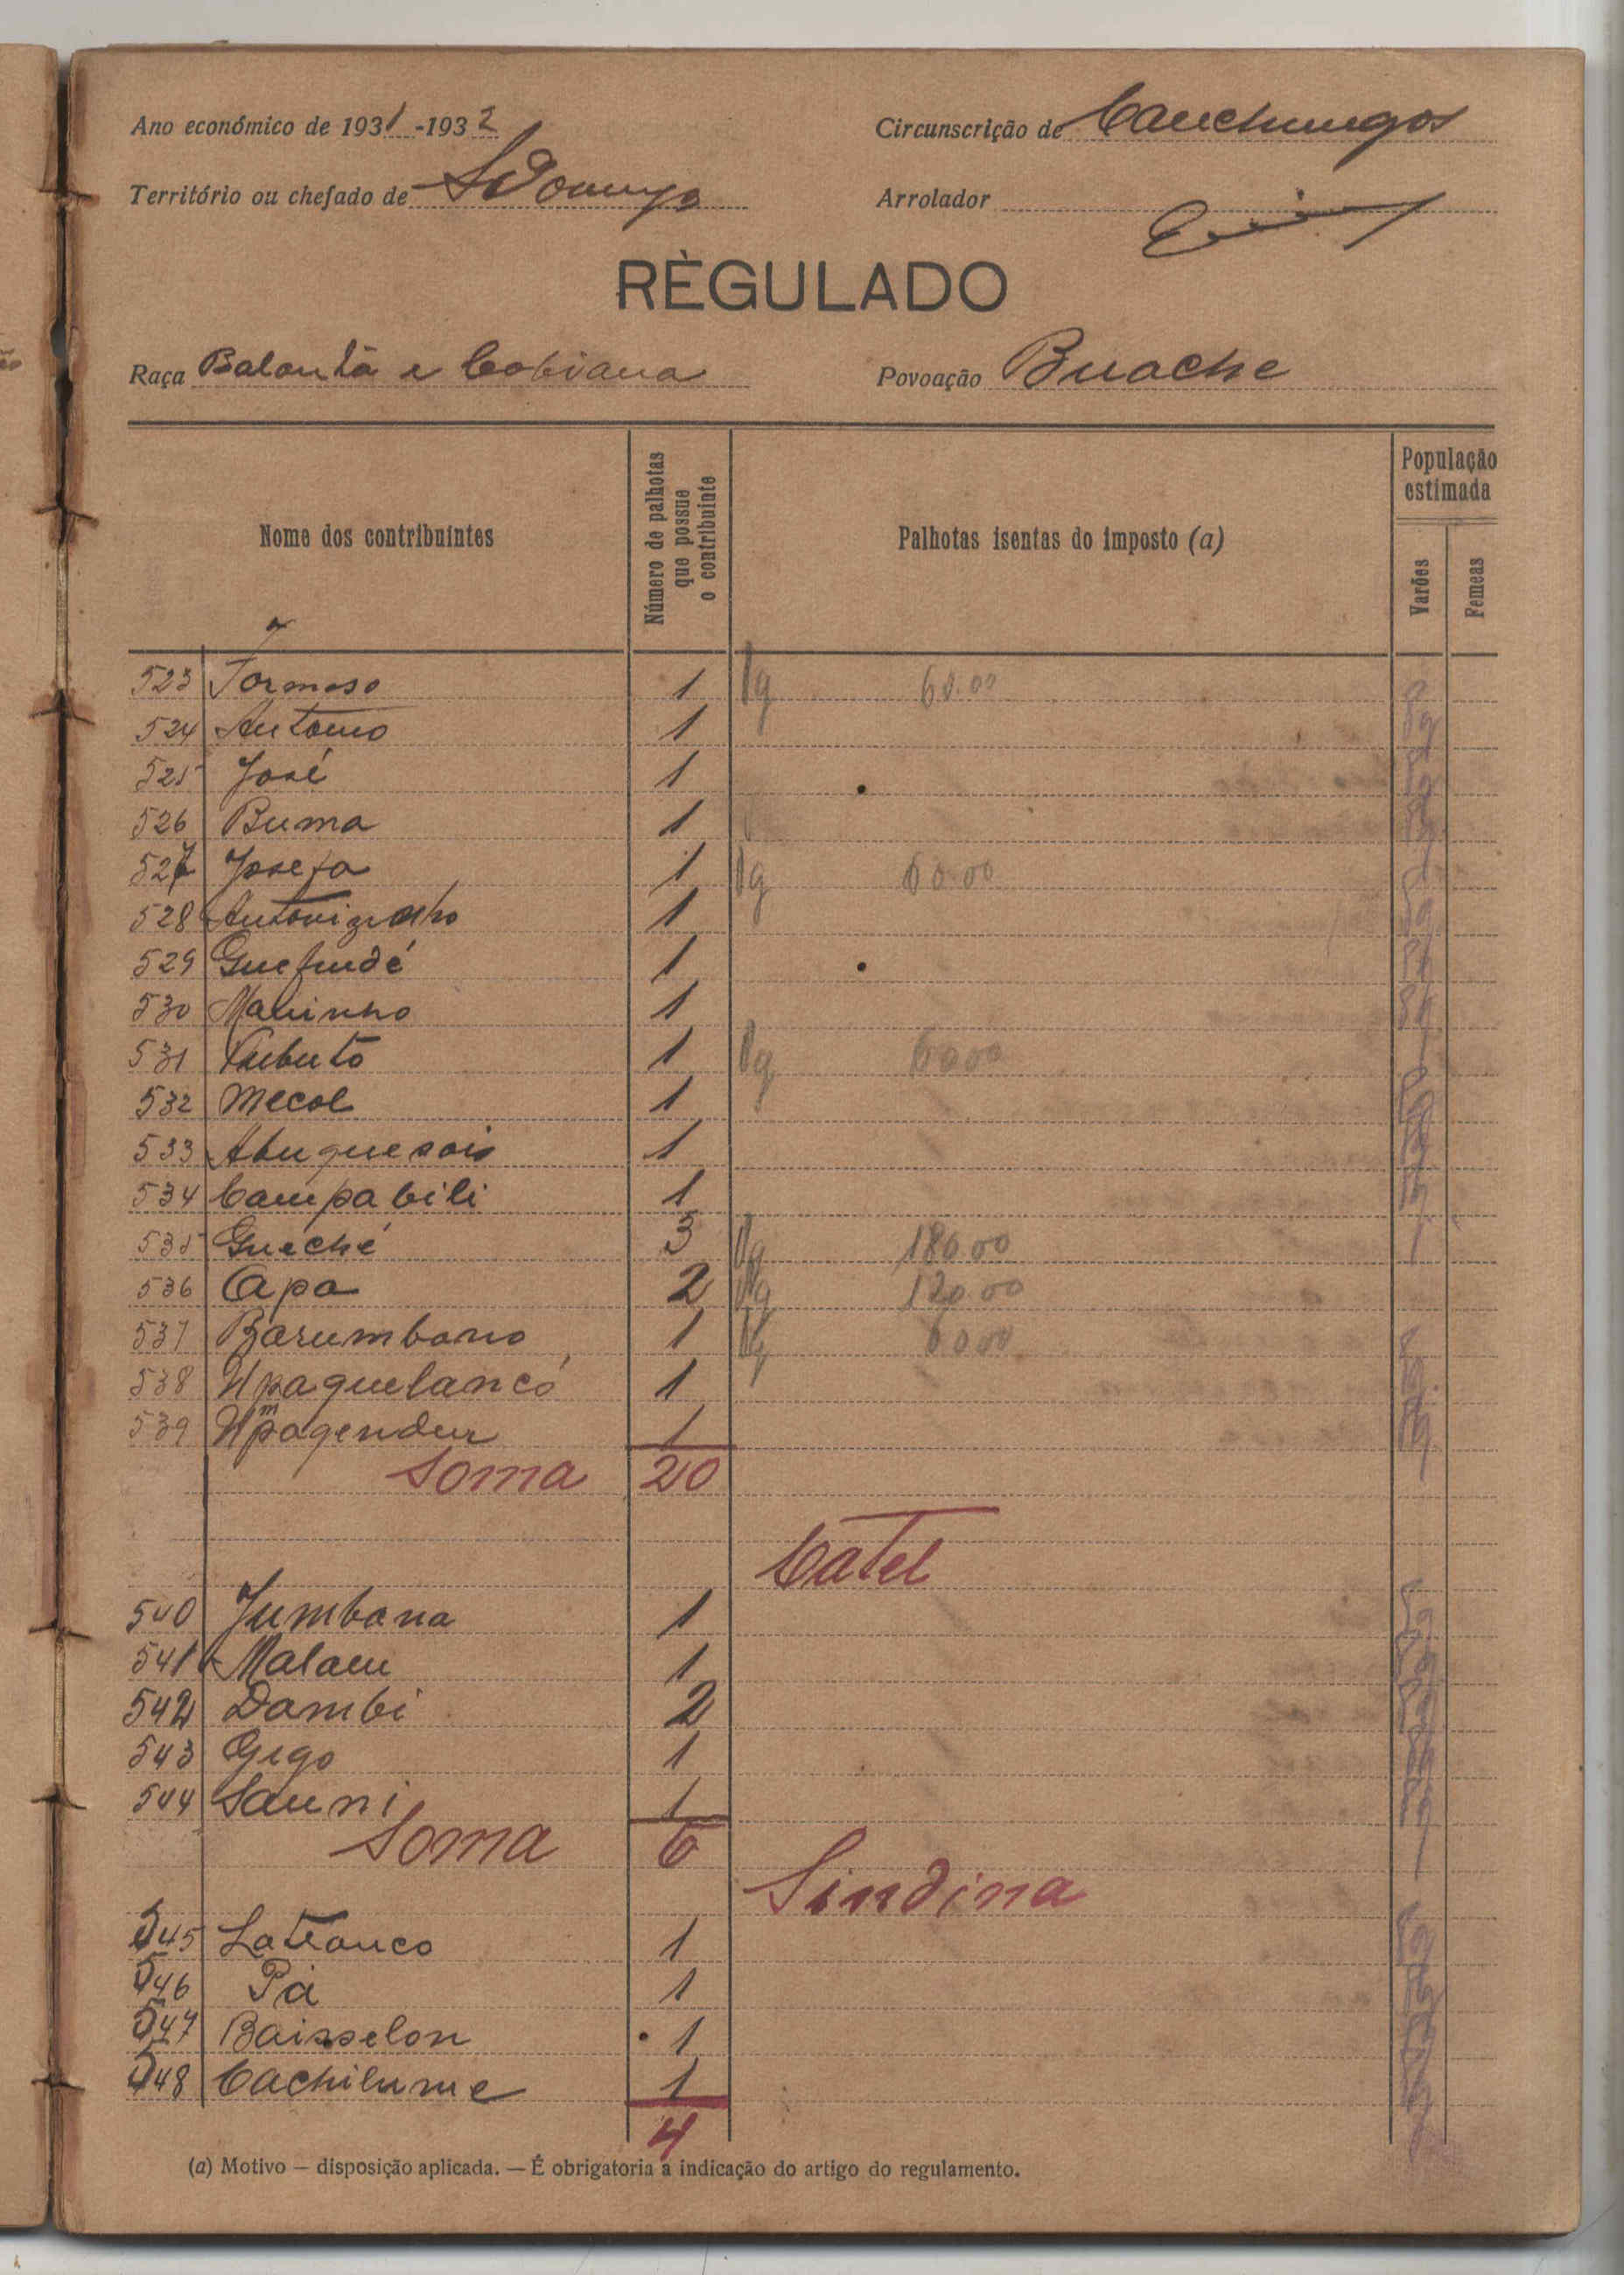 Ano económico de 1931-1932
Circunscrição de Canchungos
Território ou chefado de S. Domingos
Arrolador
RÈGULADO
Raça Balanta e Cobiana
Povoação Buache
Nome dos contribuintes
Número de palhotas que possue o contribuinte
Palhotas isentas do imposto (a)
População estimada
Varões
Femeas
523 Formoso 1 Pg 60.00
524 Antonio 1 Pg
525 José 1 Pg
526 Buma 1 Pg
527 Josefa 1 Pg 60.00
528 1 Pg
529 1 Pg
530 Maninho 1 Pg
531 1 Pg 60 00
532 Mecol 1 Pg
533 1 Pg
534 Campabili 1 Pg
535 Gueché 3 Pg 180.00
536 Apa 2 Pg 120.00
537 Barumbano 1 Pg 60 00
538 Upaquelancó 1 Pg
539 1 Pg
Soma 20
Catel
540 Jumbana 1 Pg
541 Malam 1 Pg
542 Dambi 2 Pg
543 Gego 1 Pg
544 Sauni 1 Pg
Soma 6
Sindina
545 Latranco 1 Pg
546 Pá 1 Pg
547 Baisselon 1 Pg
548 Cachilume 1 Pg
4
(a) Motivo — disposição aplicada. — É obrigatoria a indicação do artigo do regulamento.